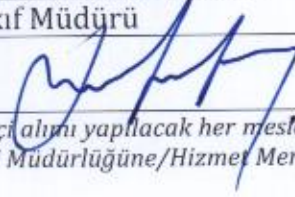 ıf Müdürü
çi alımı yapılacak her mesl
Müdürlüğüne/Hizmet Mer